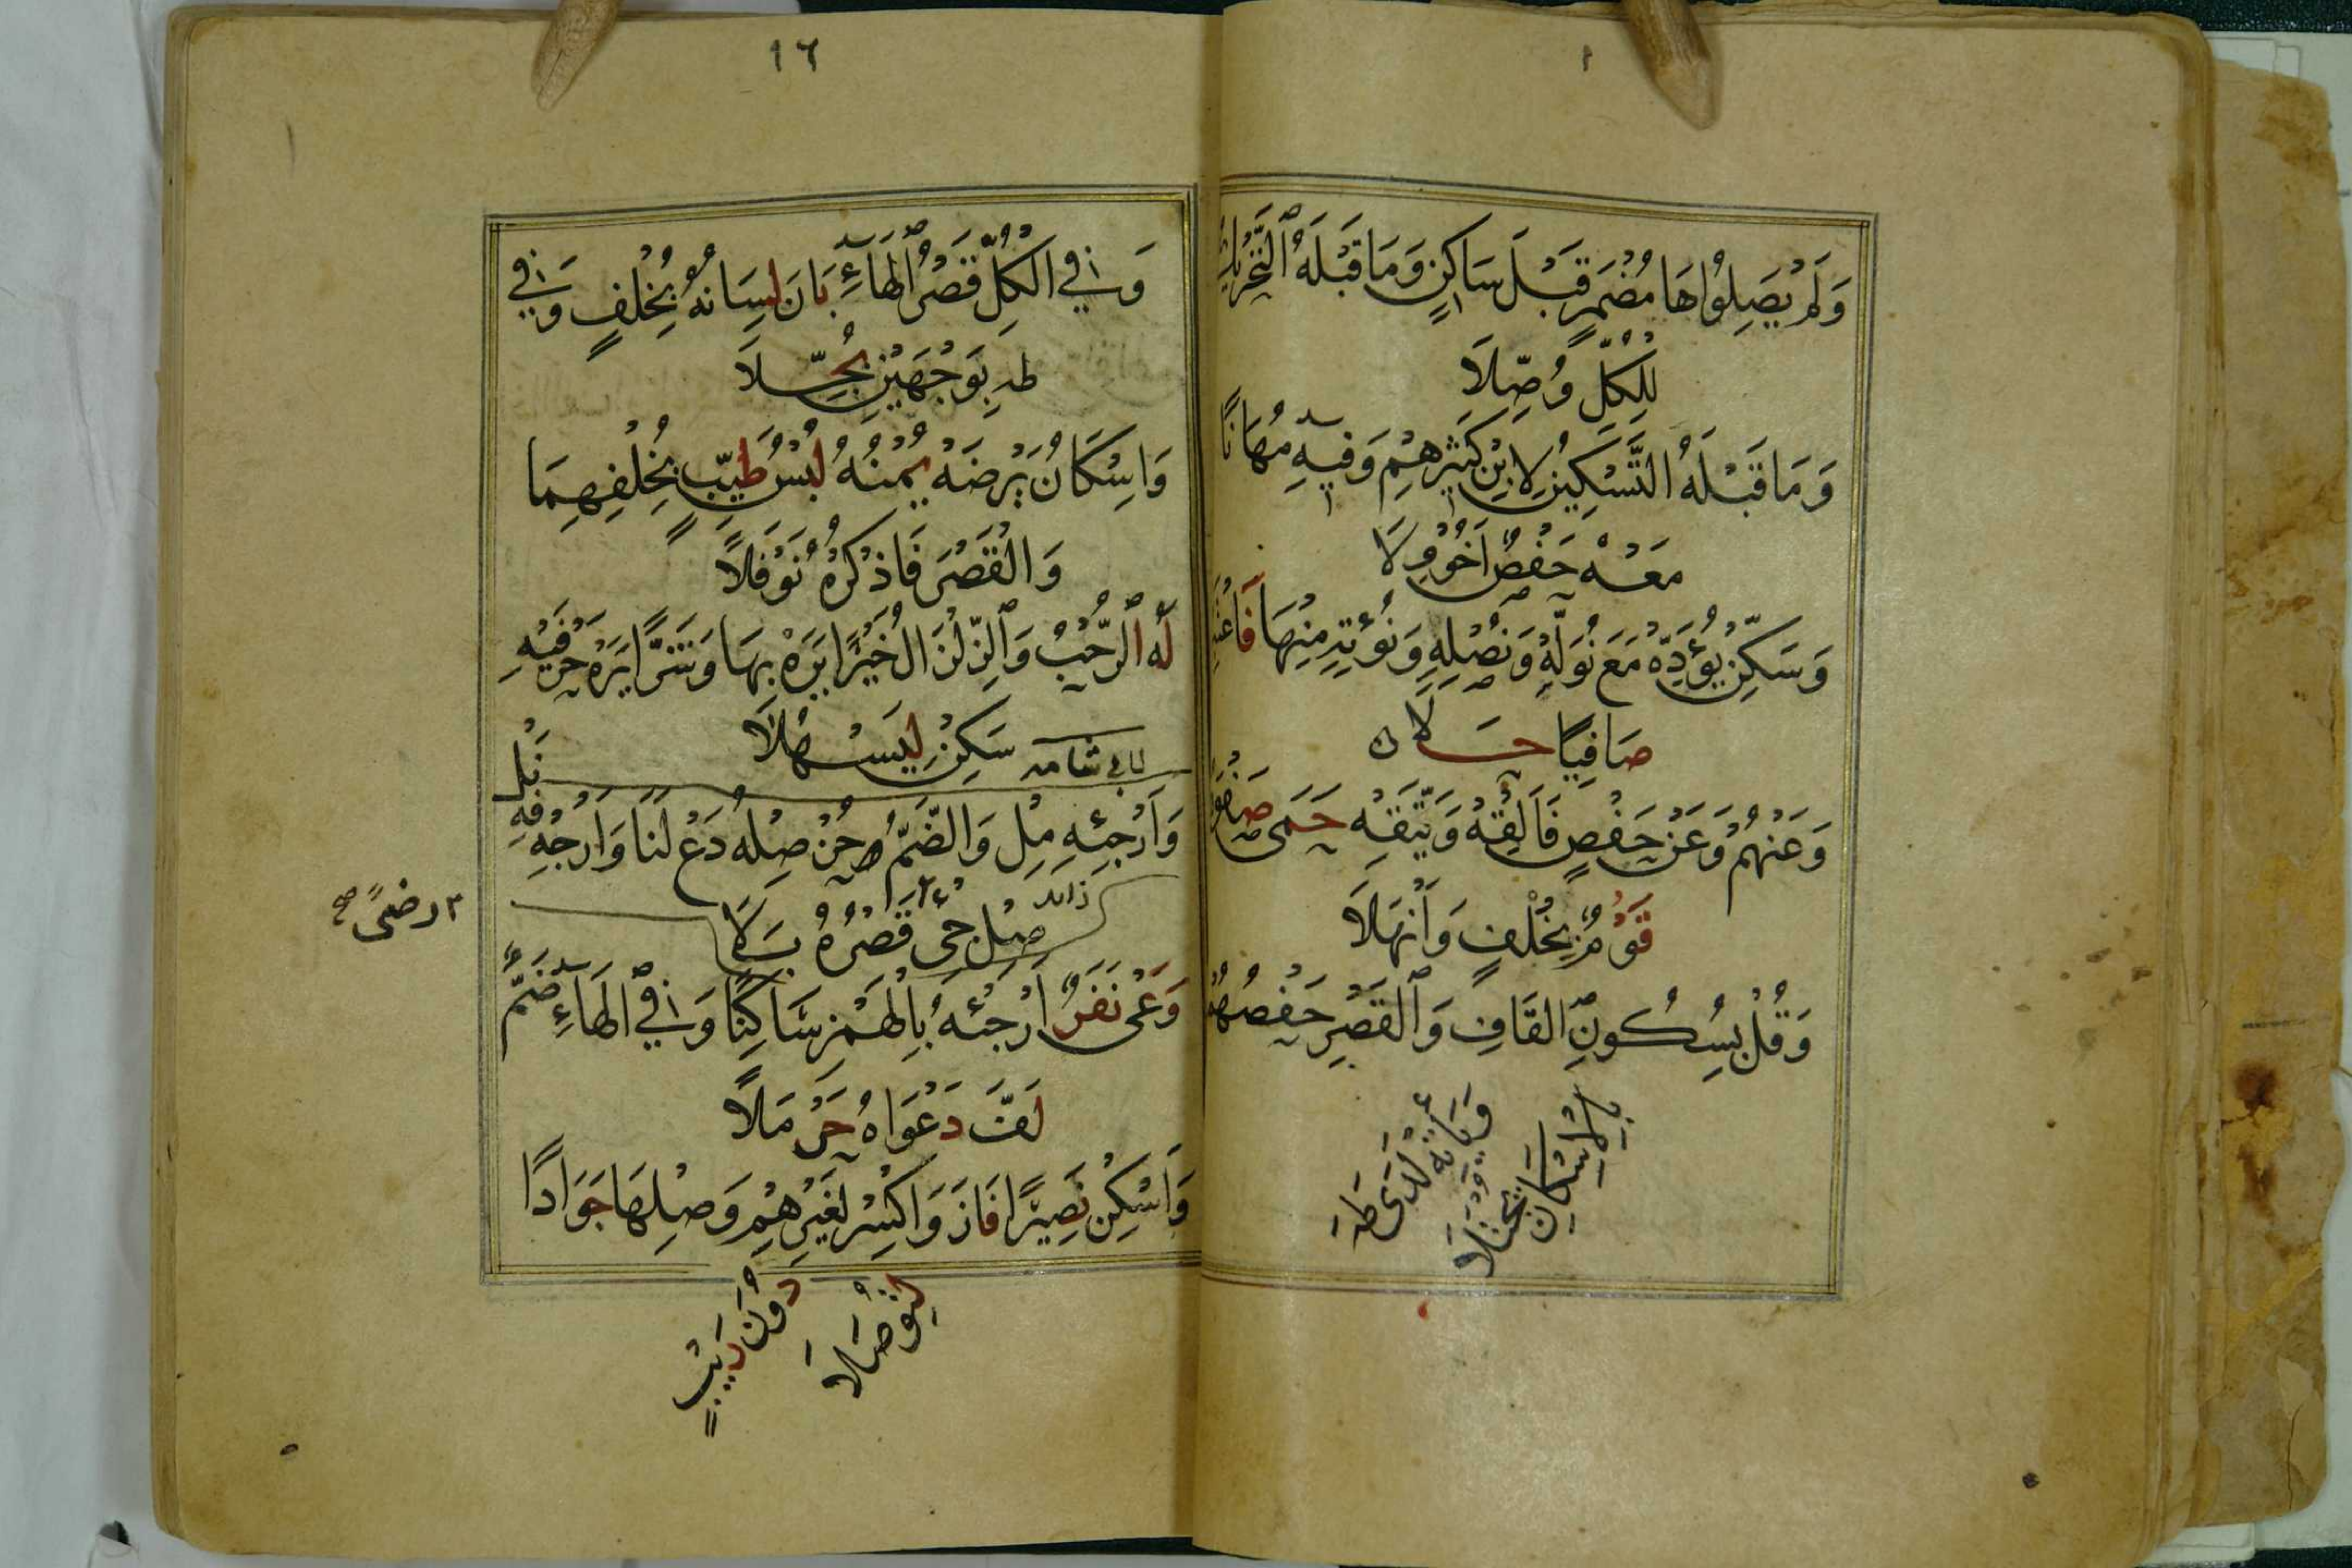 وَلَمْ يَصِلُوا هَا مُضْمَرٍ قَبْلَ سَاكِنٍ وَمَا قَبْلَهُ ٱلتَّحْرِيكُ
لِلْكُلِّ وُصِّلَا
وَمَا قَبْلَهُ التَّسْكِينُ لِابْنِ كَثِيرِهِمْ وَفِيهِ مُهَانًا
مَعْهُ حَفْصٌ اَخُو وِلَا
وَسَكِّنْ يُؤَدِّهْ مَعَ نُوَلِّهْ وَنُصْلِهِ وَنُؤْتِهِ مِنْهَا فَاعْتَبِرْ
صَافِيًا حَلَا
وَعَنْهُمْ وَعَنْ حَفْصٍ فَاَلْقِهْ وَيَتَّقِهْ حَمَى صَفْوَهُ
قَوْمٌ بِخُلْفٍ وَاَنْهَلَا
وَقُلْ بِسُكُونِ الْقَافِ وَٱلْقَصْرِ حَفْصُهُمْ
وَيَأْتِهْ لَدَى طٰهَ
بِالْاِسْكَانِ يُجْتَلَا
١٦
وَفِي الْكُلِّ قَصْرُ ٱلْهَاءِ بَانَ لِسَانُهُ بِخُلْفٍ وَفِي
طٰهَ بِوَجْهَيْنِ بُجِّلَا
وَاِسْكَانُ يَرْضَهْ يُمْنُهُ لُبْسُ طَيِّبٍ بِخُلْفِهِمَا
وَالْقَصْرَ فَاذْكُرْهُ نَوْفَلًا
لَهُ ٱلرُّحْبُ وَٱلزِّلْزَالُ خَيْرًا يَرَهْ بِهَا وَشَرًّا يَرَهْ حَرْفَيْهِ
سَكِّنْ لِيَسْهُلَا
لابي شامه
وَاَرْجِئْهِ مِلْ وَالضَّمُّ حُزْ صِلْهُ دَعْ لَنَا وَاَرْجِهْ فِهِ نَلْ
صِلْ جِئْ قَصْرُهُ بَلَا
ذلك
رضىً صح
وَعَى نَفَرٌ اَرْجِئْهُ بِالْهَمْزِ سَاكِنًا وَفِي ٱلْهَاءِ ضَمٌّ
لَفَّ دَعْوَاهُ حَرْمَلًا
وَاَسْكِنْ نَصِيرًا فَازَ وَاكْسِرْ لِغَيْرِهِمْ وَصِلْهَا جَوَادًا
دُونَ رَيْبٍ
لِتُوصَلَا